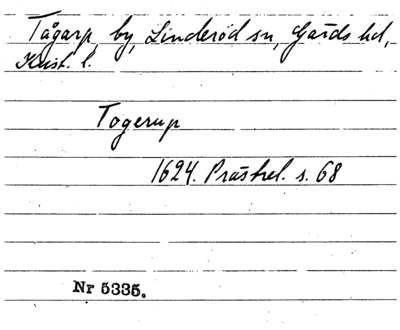 Tågarp, by, Linderöd sn, Gärds hd,
Krist. l.
Togerup
1624. Prästrel. s. 68
Nr 5335.